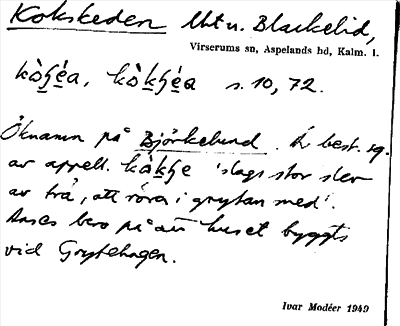 Kokskeden lht u. Blackelid,
Virserums sn, Aspelands hd, Kalm. l.
s. 10, 72.
Öknamn på Björkelund. Är best. sg.
av appell. 'slags stor slev
av trä, att röra i grytan med'.
Anses bero på att huset byggts
vid Grytehagen.
Ivar Modéer 1949